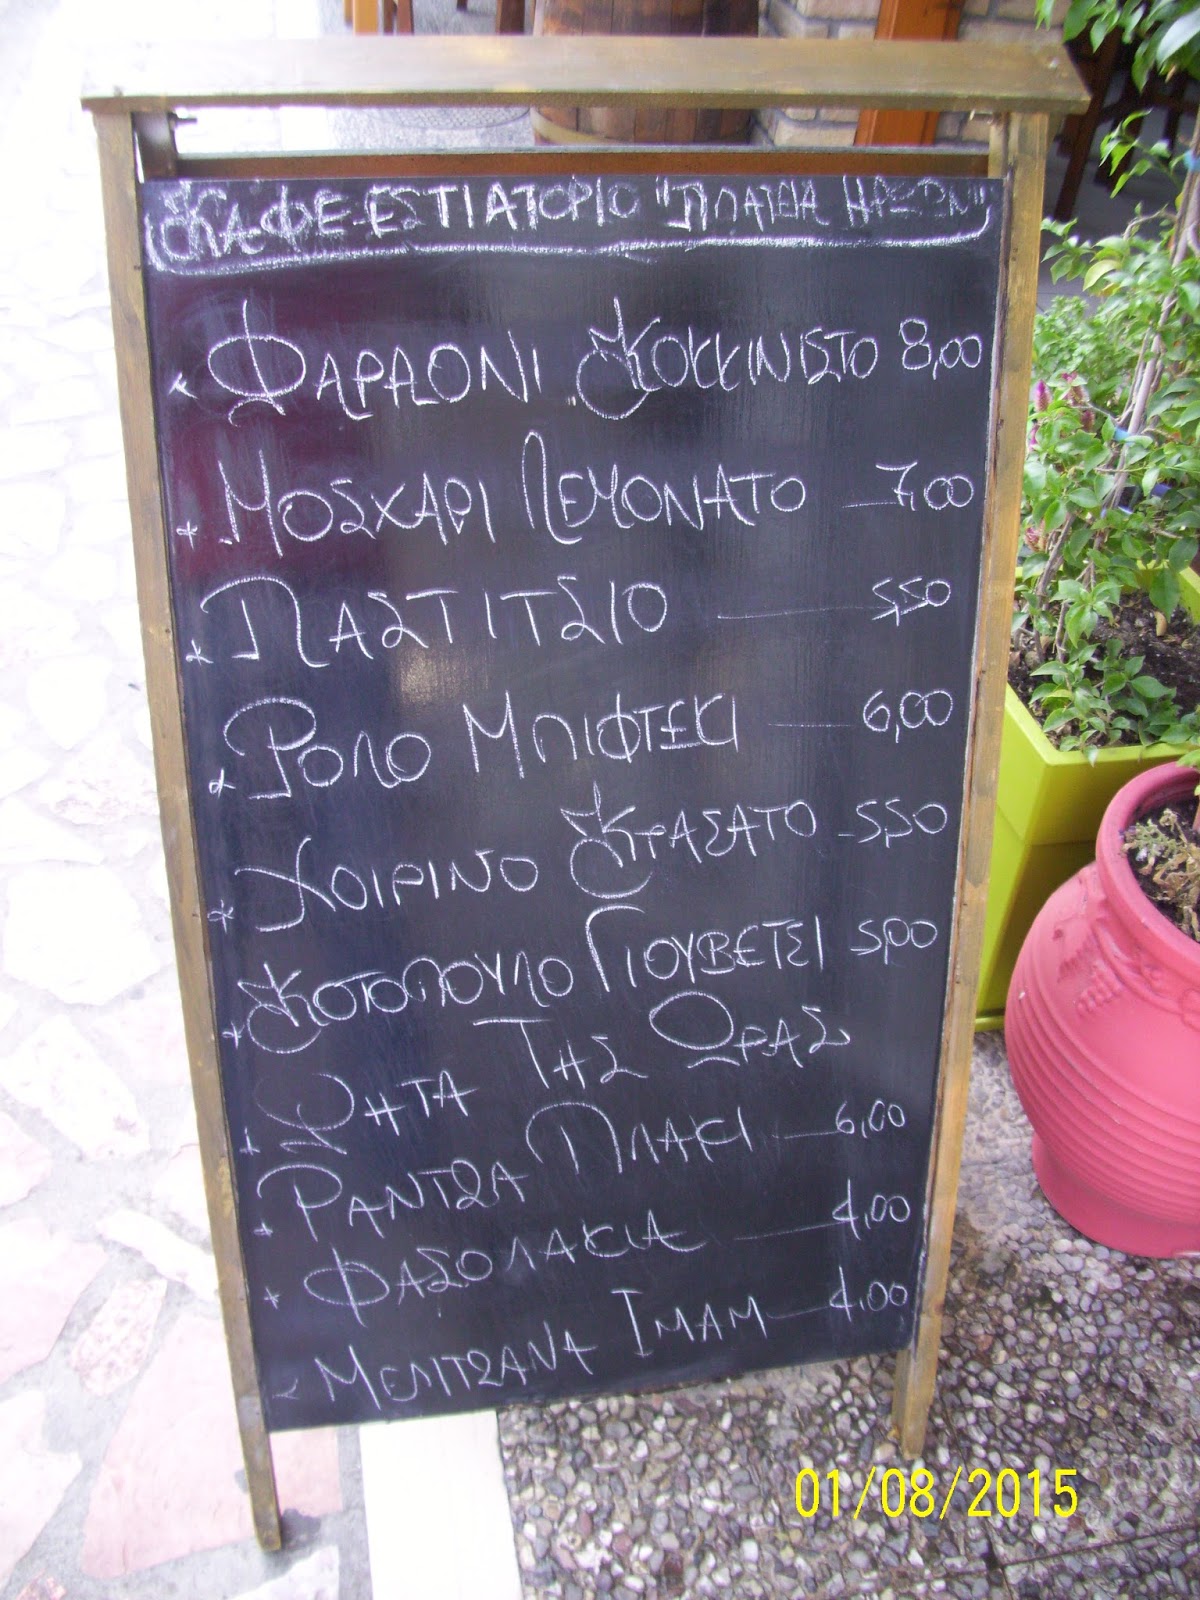 ΚΑΦΕ-ΕΣΤΙΑΤΟΡΙΟ "ΠΛΑΤΕΙΑ ΗΡΩΩΝ"
* ΦΑΡΑΩΝΙ ΚΟΚΚΙΝΙΣΤΟ 8,00
* ΜΟΣΧΑΡΙ ΛΕΜΟΝΑΤΟ — 7,00
* ΠΑΣΤΙΤΣΙΟ — 5,50
* ΡΟΛΟ ΜΠΙΦΤΕΚΙ — 6,00
* ΧΟΙΡΙΝΟ ΚΡΑΣΑΤΟ - 5,50
* ΚΟΤΟΠΟΥΛΟ ΓΙΟΥΒΕΤΣΙ 5,00
* ΨΗΤΑ ΤΗΣ ΩΡΑΣ
* ΡΑΝΤΖΑ ΠΛΑΚΙ — 6,00
* ΦΑΣΟΛΑΚΙΑ — 4,00
- ΜΕΛΙΤΖΑΝΑ ΙΜΑΜ — 4,00
01/08/2015